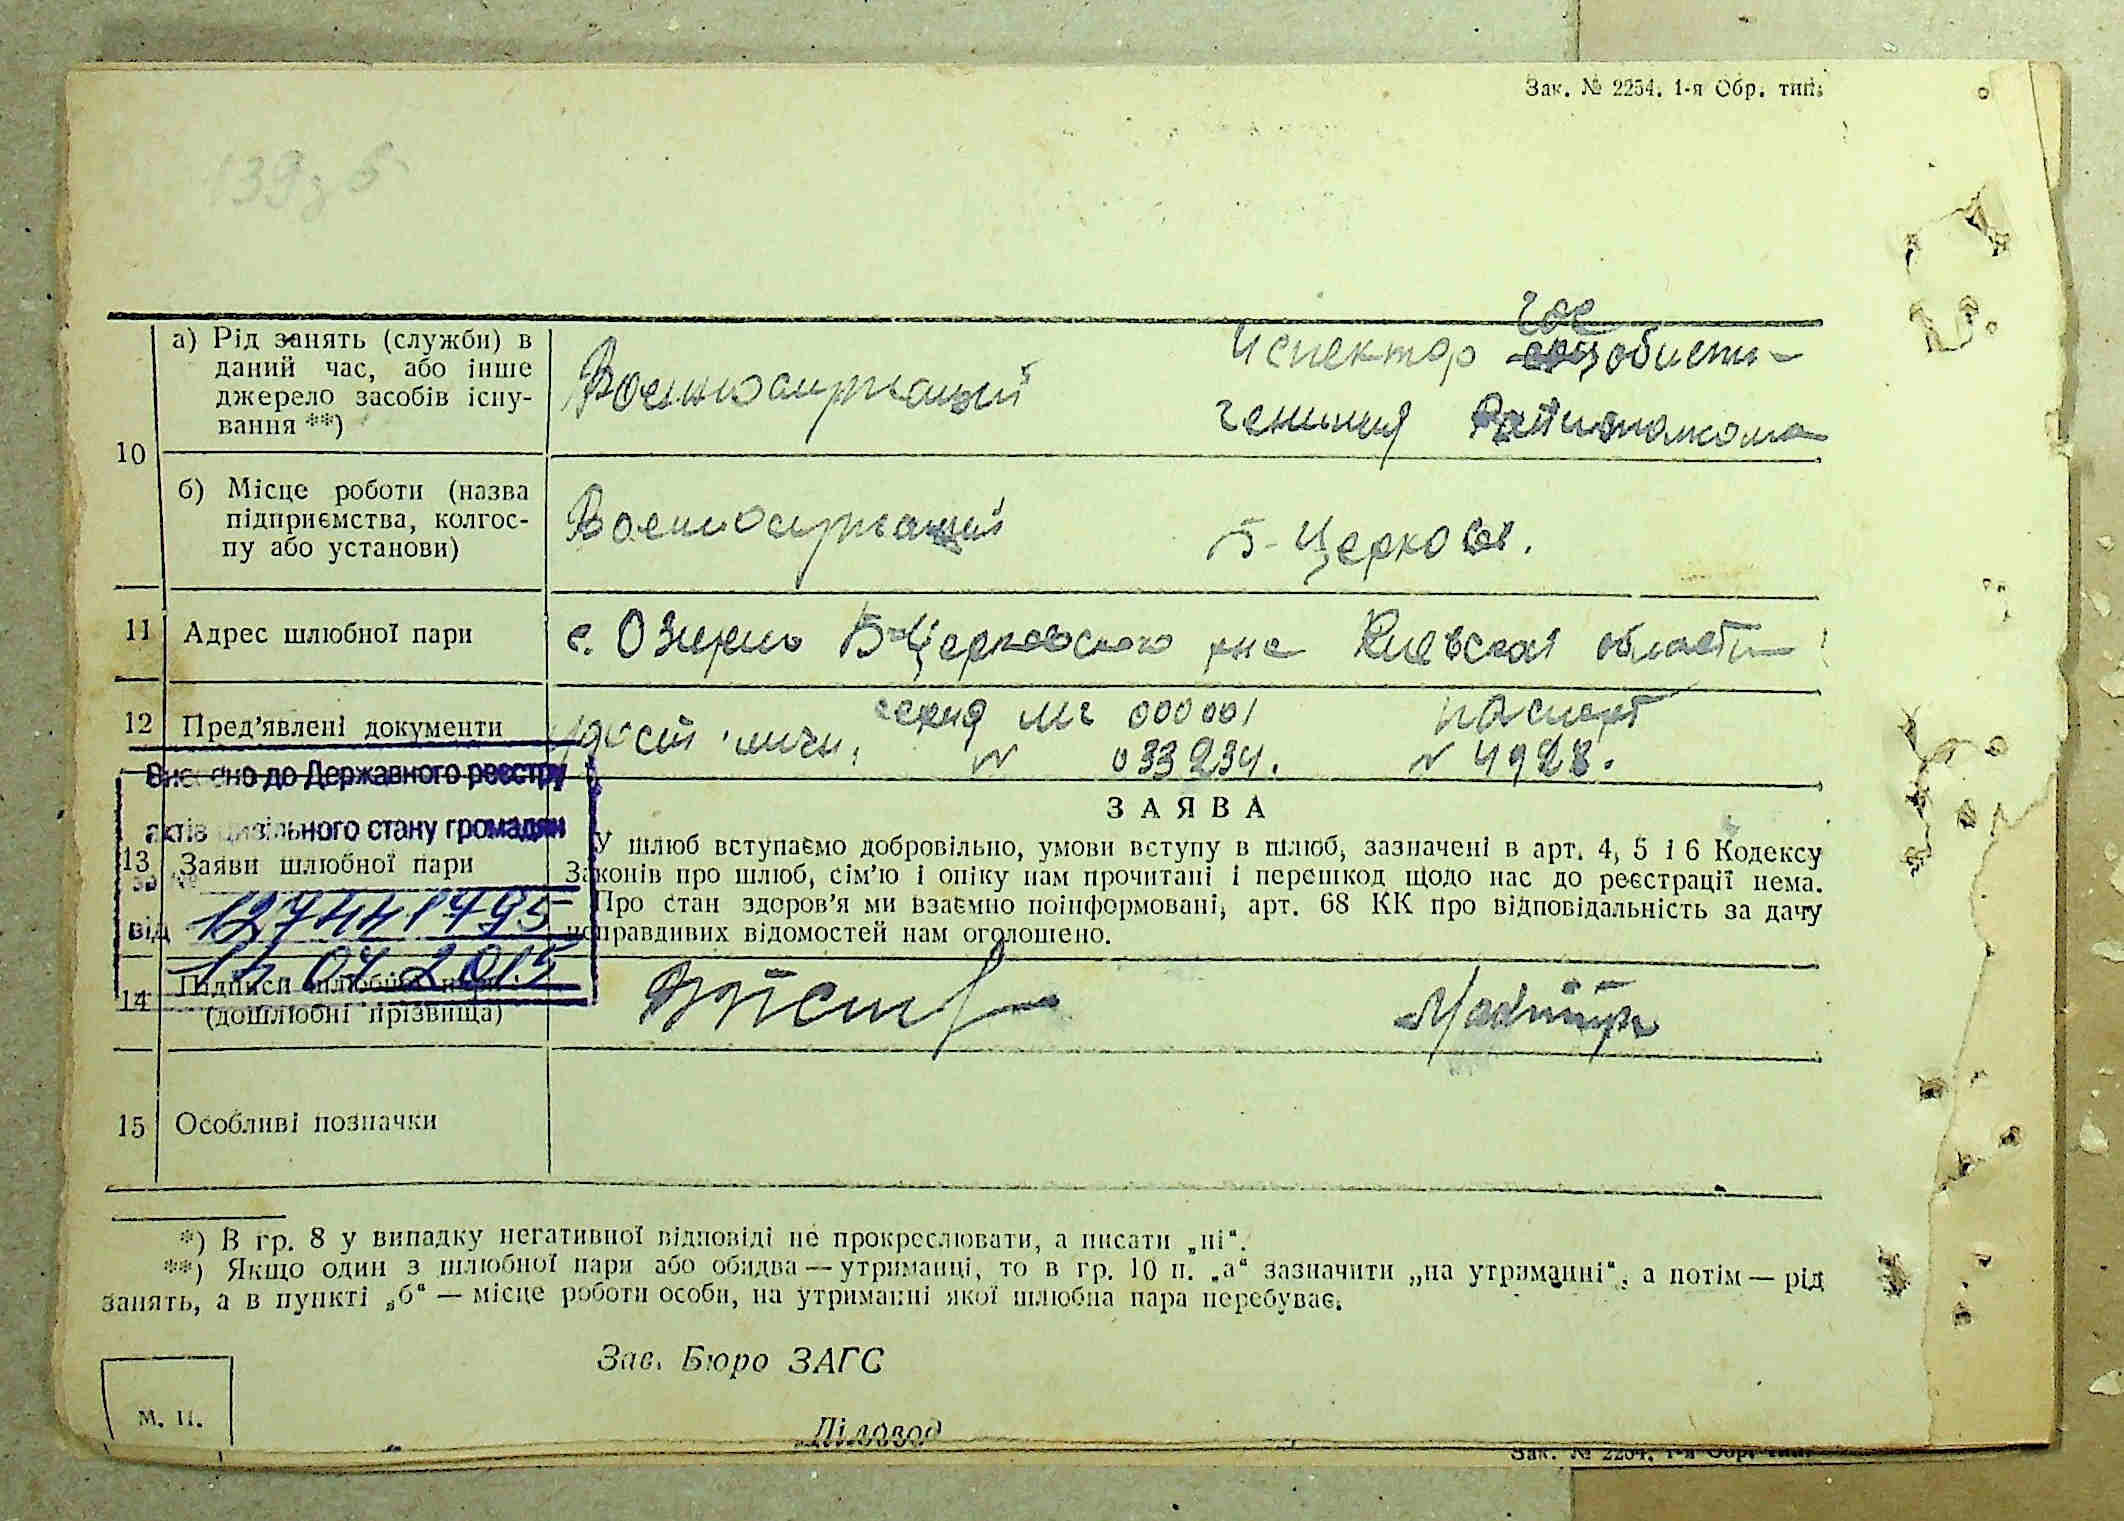 Зак. № 2254. 1-я Обр. тип.
139 з б
а) Рід занять (служби) в
даний час, або інше
джерело засобів існу-
вання **)
Военнослужащий
Испектор гос
обисти-
чениния Райисполкома
10
б) Місце роботи (назва
підприємства, колгос-
пу або установи)
Военнослужащий
Б-Церковь.
11 Адрес шлюбної пари
с. Озирно Б-Церковского р-на Киевская области
12 Пред’явлені документи
удост личн. серия МГ 000001 паспорт
№ 033234. № 4928.
Внесено до Державного реєстру
актів цивільного стану громадян
13 Заяви шлюбної пари
за №
від
ЗАЯВА
У шлюб вступаємо добровільно, умови вступу в шлюб, зазначені в арт. 4, 5 і 6 Кодексу
Законів про шлюб, сім’ю і опіку нам прочитані і перешкод щодо нас до реєстрації нема.
Про стан здоров’я ми взаємно поінформовані, арт. 68 КК про відповідальність за дачу
неправдивих відомостей нам оголошено.
14 Підписи шлюбної пари
(дошлюбні прізвища)
15 Особливі позначки
*) В гр. 8 у випадку негативної відповіді не прокреслювати, а писати „ні“.
**) Якщо один з шлюбної пари або обидва — утриманці, то в гр. 10 п. „а“ зазначити „на утриманні“, а потім — рід
занять, а в пункті „б“ — місце роботи особи, на утриманні якої шлюбна пара перебуває.
Зав. Бюро ЗАГС
М. П.
Діловод
Зак. № 2254. 1-я Обр. тип.